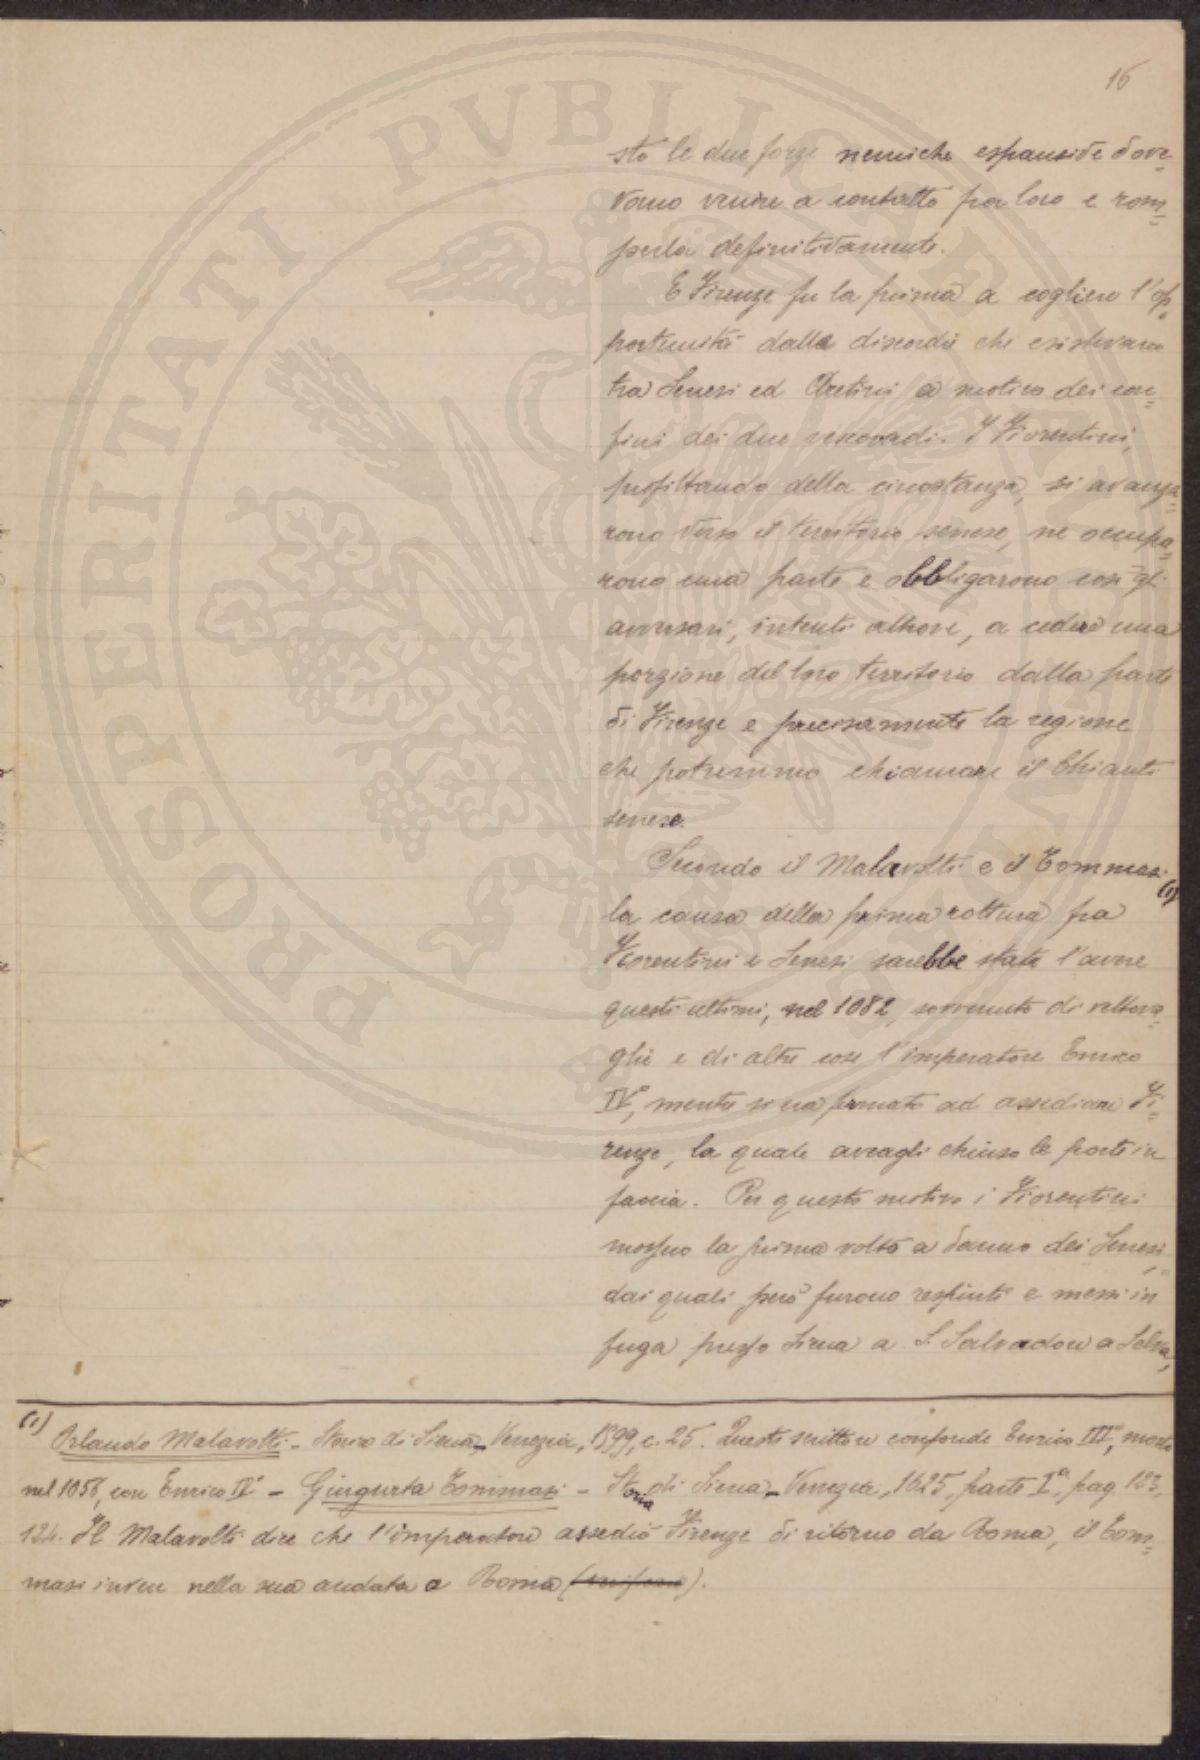 16
sto le due forze nemiche espansive dove-
vano venire a contatto fra loro e rom-
perla definitivamente.
E Firenze fu la prima a cogliere l'op-
portunità dalla discordie che esistevano
tra Senesi ed Aretini a motivo dei con-
fini dei due vescovadi. I Fiorentini,
profittando della circostanza, si avanza-
rono verso il territorio senese, ne occupa-
rono una parte e obbligarono così gli
avversari, intenti altrove, a cedere una
porzione del loro territorio dalla parte
di Firenze e precisamente la regione
che potremmo chiamare il Chianti
senese.
Secondo il Malavolti e il Tommasi (1)
la causa della prima rottura fra
Fiorentini e Senesi sarebbe stata l'avere
questi ultimi, nel 1082, sovvenuto di vettova-
glie e di altre cose l'imperatore Enrico
IV°, mentre si era fermato ad assediare Fi-
renze, la quale aveagli chiuso le porte in
faccia. Per questo motivo i Fiorentini
mossero la prima volta a danno dei Senesi,
dai quali però furono respinti e messi in
fuga presso Siena a S. Salvadore a Selva,
(1) Orlando Malavolti - Storia di Siena - Venezia, 1599, c. 25. Questo scrittore confonde Enrico III°, morto
nel 1056, con Enrico IV° - Giugurta Tommasi - Storia di Siena - Venezia, 1625, parte Iª, pag. 123,
124. Il Malavolti dice che l'imperatore assediò Firenze di ritorno da Roma, il Tom-
masi invece nella sua andata a Roma ( ).
PROSPERITATI PVBLICAE